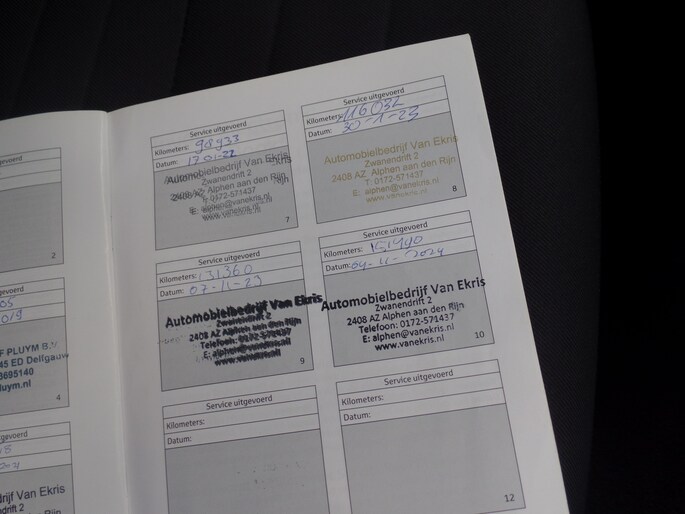 gevoerd
2
05
019
F PLUYM B.V
45 ED Delfgauw
3695140
luym.nl
4
gevoerd
8
rijf Van Ekris
2
en den Rijn
Service uitgevoerd
Kilometers:
Datum: 17 01-22
Automobielbedrijf Van Ekris
Zwanendrift 2
2408 AZ Alphen aan den Rijn
T: 0172-571437
E: alphen@vanekris.nl
www.vanekris.nl
7
Service uitgevoerd
Kilometers: 116032
Datum: 30-1-23
Automobielbedrijf Van Ekris
Zwanendrift 2
2408 AZ Alphen aan den Rijn
T: 0172-571437
E: alphen@vanekris.nl
www.vanekris.nl
8
Service uitgevoerd
Kilometers: 131360
Datum: 07-11-23
Automobielbedrijf Van Ekris
Zwanendrift 2
2408 AZ Alphen aan den Rijn
Telefoon: 0172-571437
E: alphen@vanekris.nl
www.vanekris.nl
9
Service uitgevoerd
Kilometers:
Datum: 04-11-2024
Automobielbedrijf Van Ekris
Zwanendrift 2
2408 AZ Alphen aan den Rijn
Telefoon: 0172-571437
E: alphen@vanekris.nl
www.vanekris.nl
10
Service uitgevoerd
Kilometers:
Datum:
Service uitgevoerd
Kilometers:
Datum:
12